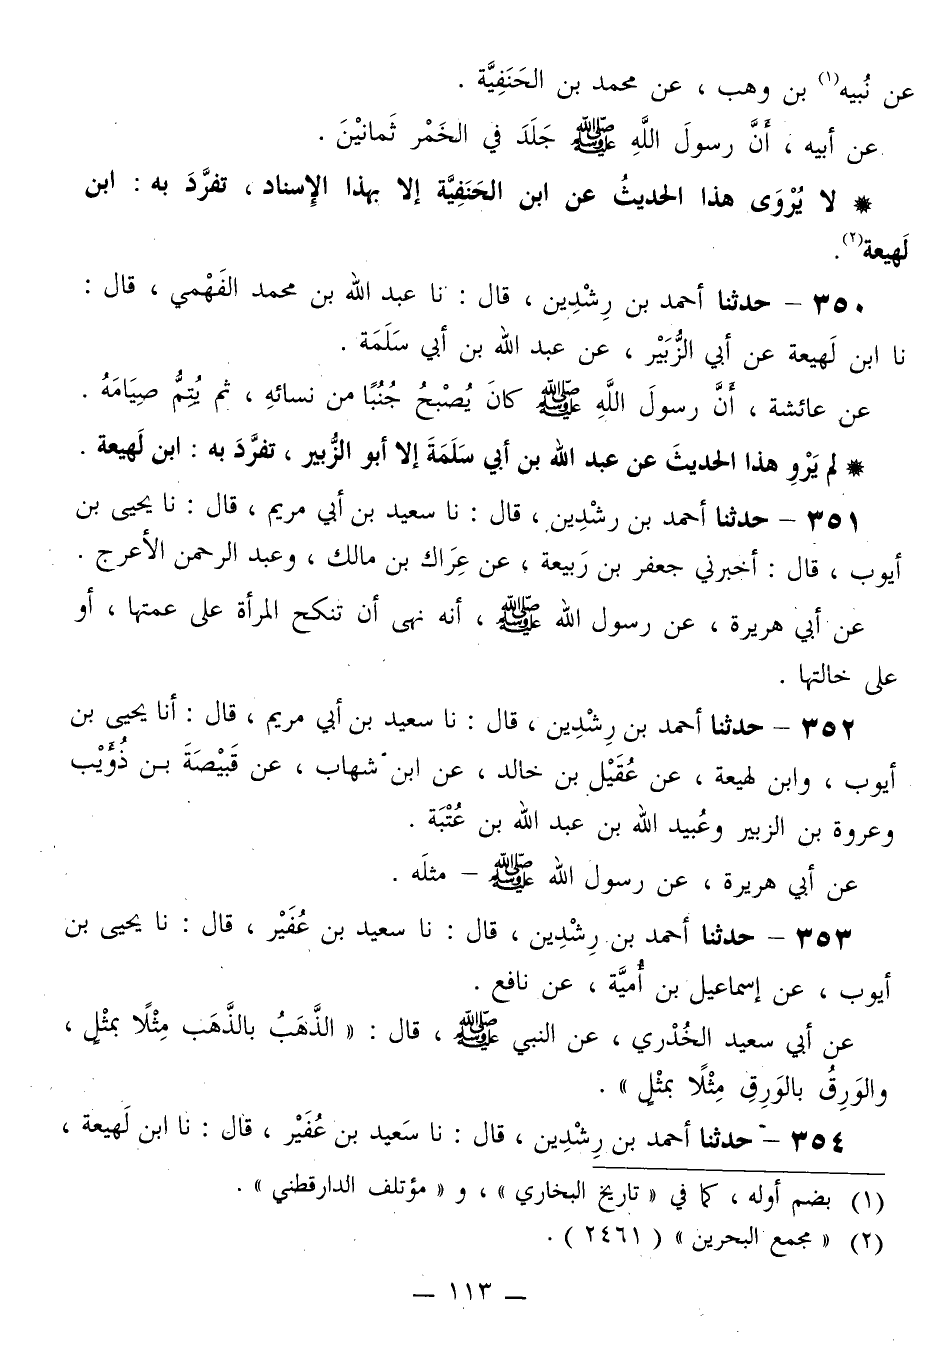 عن نُبيه(١) بن وهب ، عن محمد بن الحَنَفِيَّة .
عن أبيه ، أَنَّ رسولَ اللَّهِ ﷺ جَلَدَ في الخَمْر ثَمانيْنَ .
* لا يُرْوَى هذا الحديثُ عن ابن الحَنَفِيَّة إلا بهذا الإِسناد ، تفرَّدَ به : ابن
لَهيعة(٢).
٣٥٠ – حدثنا أحمد بن رِشْدِين ، قال : نا عبد الله بن محمد الفَهْمي ، قال :
نا ابن لَهيعة عن أبي الزُّبَيْر ، عن عبد الله بن أبي سَلَمَة .
عن عائشة ، أَنَّ رسولَ اللَّهِ ﷺ كانَ يُصْبحُ جُنُبًا من نسائهِ ، ثم يُتِمُّ صِيَامَهُ .
* لم يَرْوِ هذا الحديثَ عن عبد الله بن أبي سَلَمَةَ إلا أبو الزُّبير ، تفرَّدَ به : ابن لَهيعة .
٣٥١ – حدثنا أحمد بن رشْدِين ، قال : نا سعيد بن أبي مريم ، قال : نا يحيى بن
أيوب ، قال : أخبرني جعفر بن رَبيعة ، عن عِرَاك بن مالك ، وعبد الرحمن الأعرج .
عن أبي هريرة ، عن رسول الله ﷺ ، أنه نهى أن تنكح المرأة على عمتها ، أو
على خالتها .
٣٥٢ – حدثنا أحمد بن رِشْدِين ، قال : نا سعيد بن أبي مريم ، قال : أنا يحيى بن
أيوب ، وابن لهيعة ، عن عُقَيْل بن خالد ، عن ابن شهاب ، عن قَبيْصَةَ بن ذُؤَيْب
وعروة بن الزبير وعُبيد الله بن عبد الله بن عُتْبَة .
عن أبي هريرة ، عن رسول الله ﷺ – مثلَه .
٣٥٣ – حدثنا أحمد بن رِشْدِين ، قال : نا سعيد بن عُفَيْر ، قال : نا يحيى بن
أيوب ، عن إسماعيل بن أُميَّة ، عن نافع .
عن أبي سعيد الخُدْري ، عن النبي ﷺ ، قال : « الذَّهَبُ بالذَّهَب مِثْلًا بمثْلٍ ،
والوَرِقُ بالوَرِقِ مِثْلًا بمثْلٍ » .
٣٥٤ – حدثنا أحمد بن رِشْدِين ، قال : نا سَعيد بن عُفَيْر ، قال : نا ابن لَهيعة ،
(١) بضم أوله ، كما في « تاريخ البخاري » ، و « مؤتلف الدارقطني » .
(٢) « مجمع البحرين » ( ٢٤٦١ ) .
— ١١٣ —